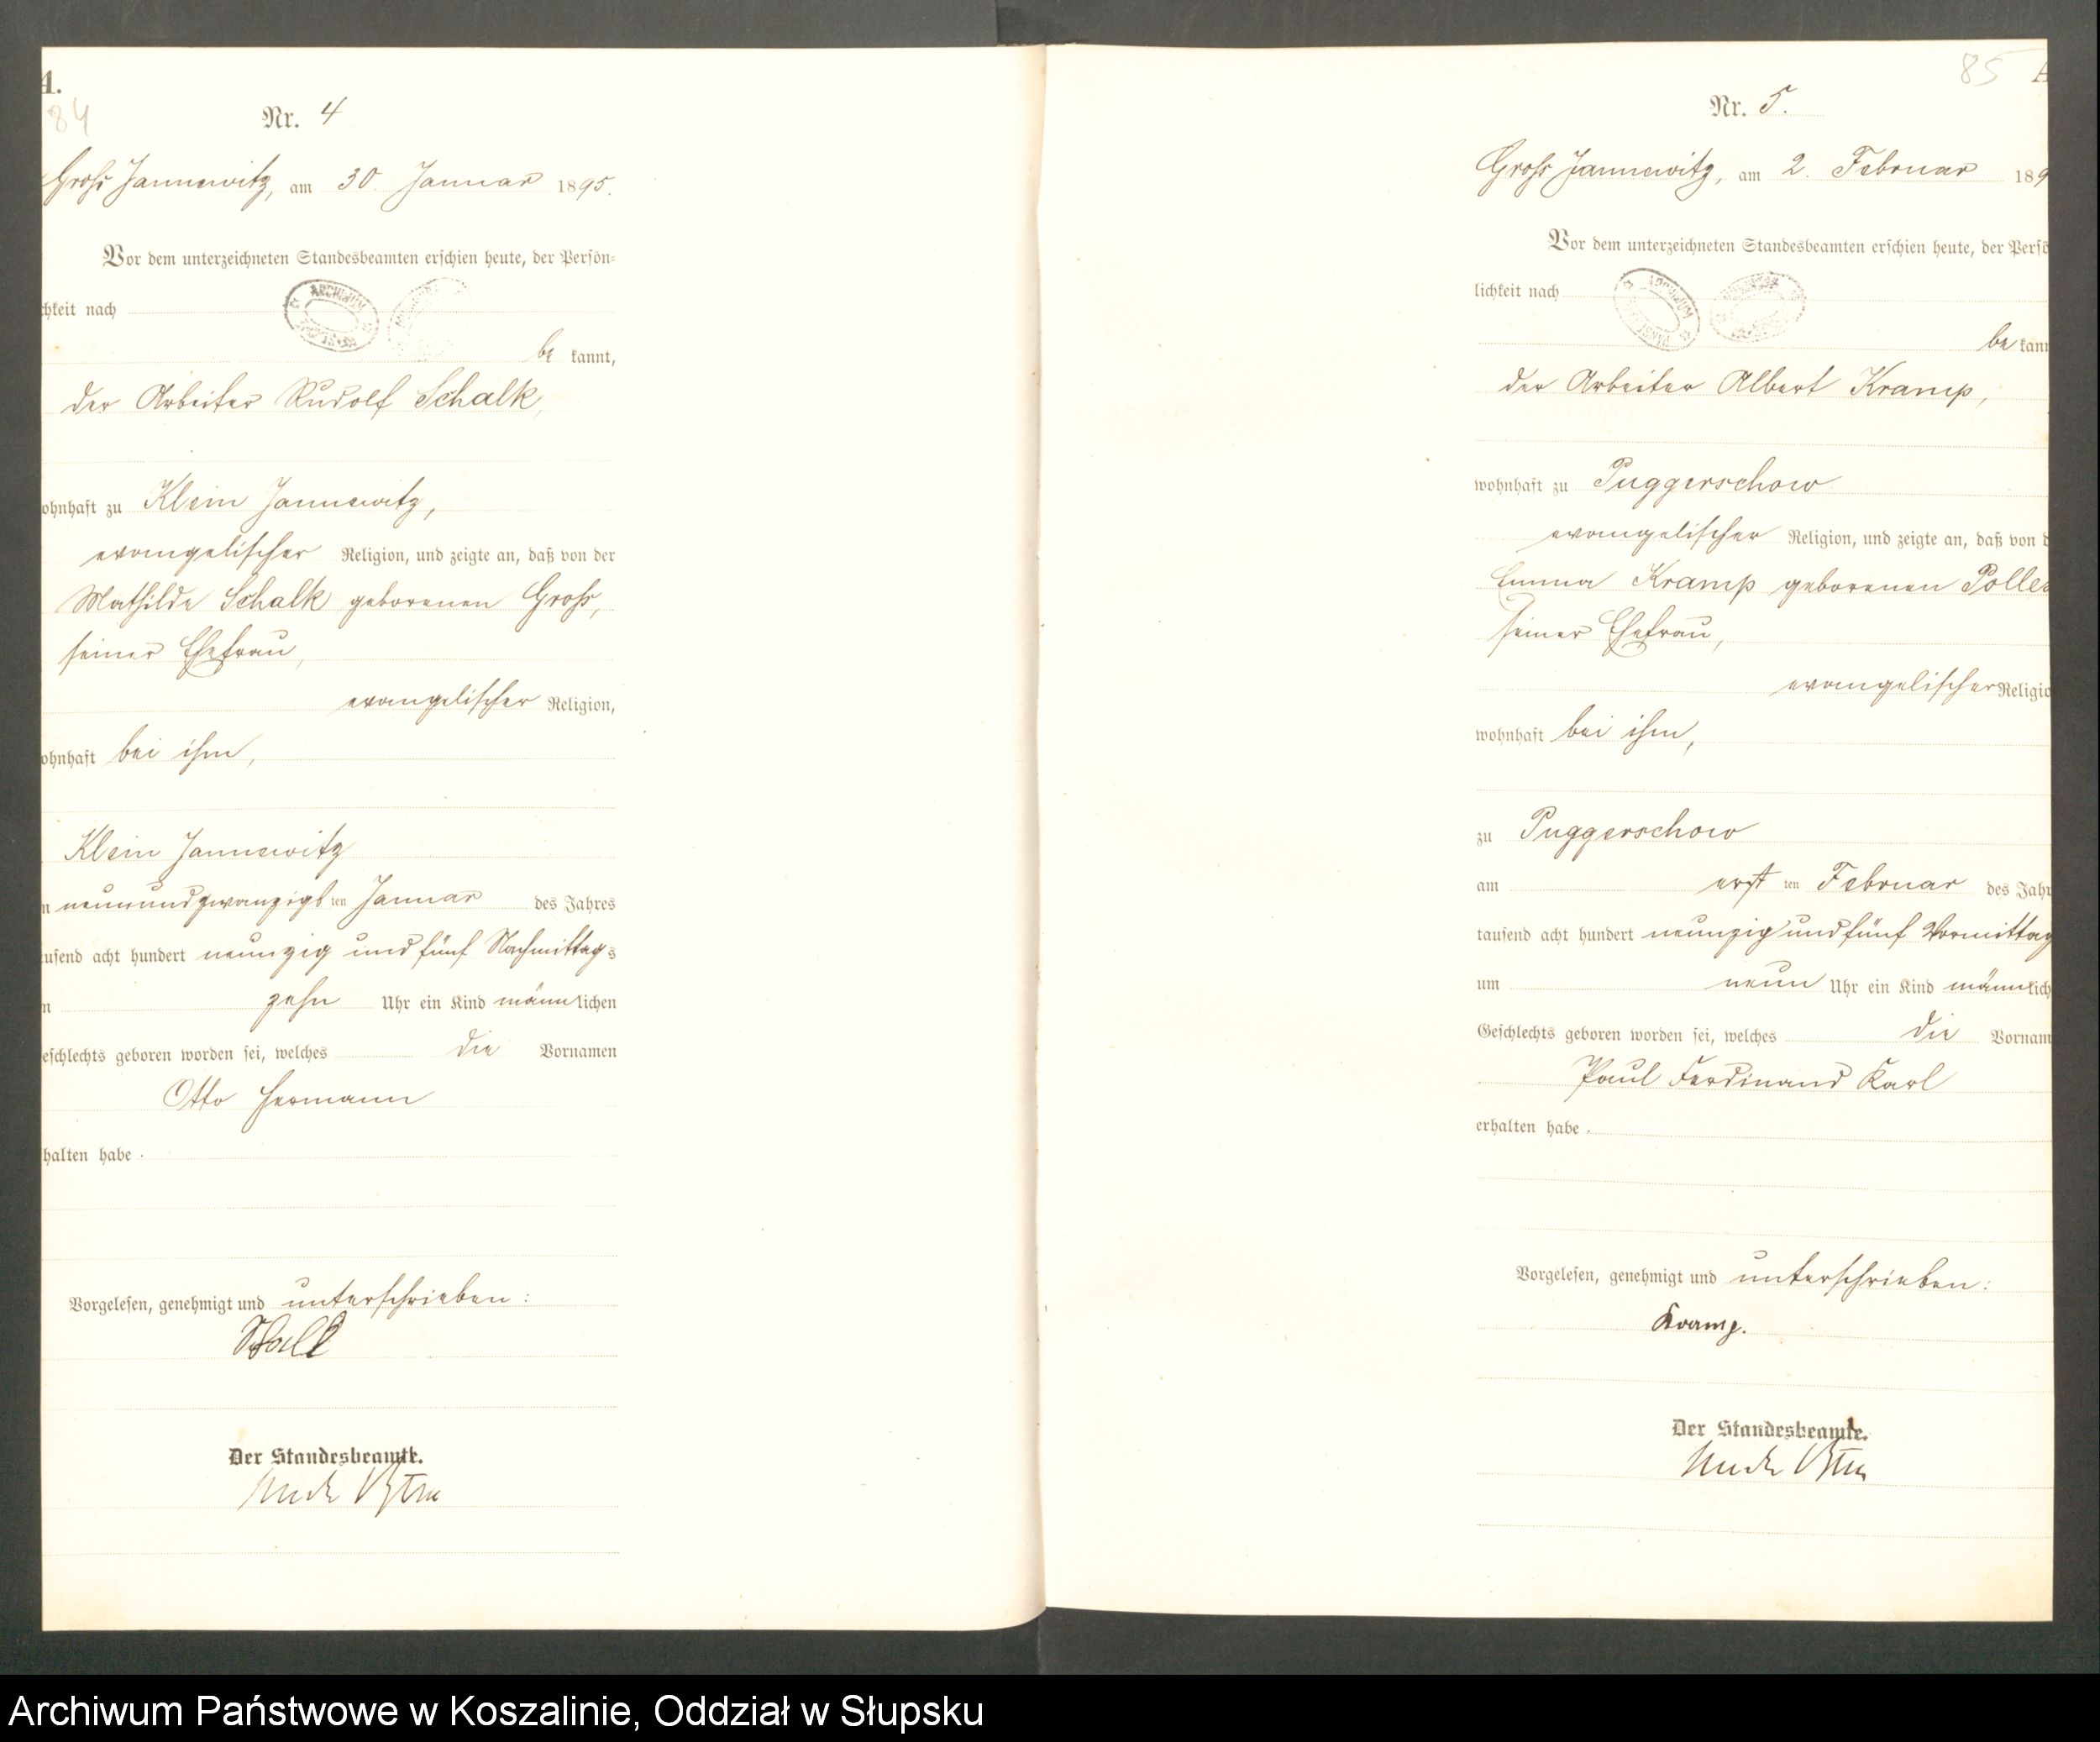 A.
84
Nr. 4
Gross Jannewitz, am 30. Januar 1895.
Vor dem unterzeichneten Standesbeamten erschien heute, der Persön-
chkeit nach
be kannt,
der Arbeiter Rudolf Schalk,
ohnhaft zu Klein Jannewitz,
evangelischer Religion, und zeigte an, daß von der
Mathilde Schalk geborenen Gross,
seiner Ehefrau,
evangelischer Religion,
ohnhaft bei ihm,
Klein Jannewitz
neunundzwanzigsten Januar des Jahres
usend acht hundert neunzig und fünf Nachmittags
zehn Uhr ein Kind männlichen
eschlechts geboren worden sei, welches die Vornamen
Otto Hermann
halten habe.
Vorgelesen, genehmigt und unterschrieben:
Schalk
Der Standesbeamte.
85
A
Nr. 5.
Gross Jannewitz, am 2. Februar 189
Vor dem unterzeichneten Standesbeamten erschien heute, der Persö
lichkeit nach
ARCHIWUM
be kann
der Arbeiter Albert Kramp,
wohnhaft zu Puggerschow
evangelischer Religion, und zeigte an, daß von d
Emma Kramp geborenen Polle
seiner Ehefrau,
evangelischer Religio
wohnhaft bei ihm,
zu Puggerschow
am ersten Februar des Jahr
tausend acht hundert neunzig und fünf Vormittag
um neun Uhr ein Kind männlich
Geschlechts geboren worden sei, welches die Vornam
Paul Ferdinand Karl
erhalten habe.
Vorgelesen, genehmigt und unterschrieben:
Kramp.
Der Standesbeamte.
Archiwum Państwowe w Koszalinie, Oddział w Słupsku